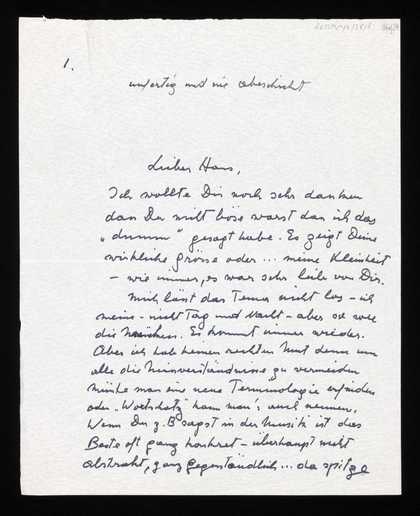 1.
unfertig und nie abeschickt
Lieber Hans,
Ich wollte Dir noch sehr danken
dan Du nicht böse warst dan ich das
„dumm“ gesagt habe. Es zeigt Deine
wirkliche grösse oder ... meine Kleinheit
– wie immer, es war sehr lieb von Dir.
Mich lässt das Tema nicht los – ich
meine – nicht Tag und Nacht – aber so wie
die. Es kommt immer wieder.
Aber ich hab keinen rechten Mut denn um
alle die Missverständnisse zu vermeiden
müsste man eine neue Terminologie erfinden
oder „Wortschatz“ kann man's auch nennen.
Wenn Du z.B sagst in der Musik ist das
Beste oft ganz konkret – überhaupt nicht
abstrakt, ganz gegenständlich ... da spitze